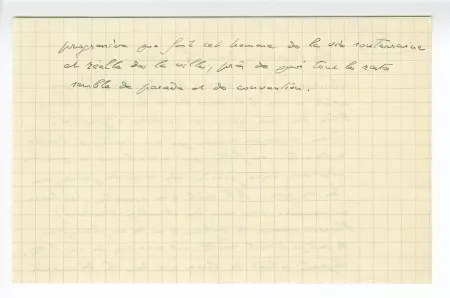 progressive que fait cet homme de la vie souterraine
et réelle de la ville, près de quoi tout le reste
semble de parade et de convention.